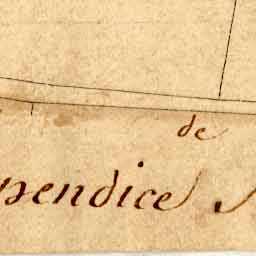 de
pendice